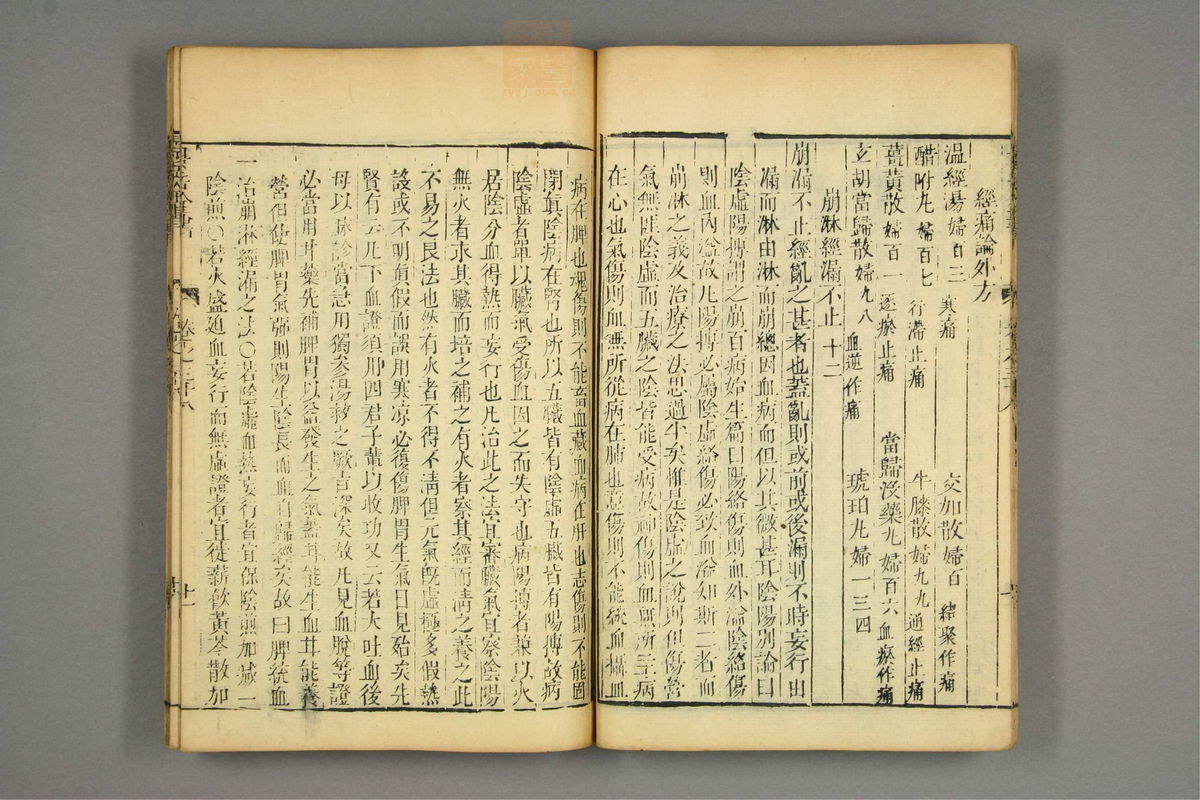 經痛論外方
溫經湯婦百三 寒痛 交加散婦百 結聚作痛
醋附丸婦百七 行滯止痛 牛膝散婦九九 通經止痛
薑黃散婦百一 逐瘀止痛 當歸沒藥丸婦百六 血瘀作痛
玄胡當歸散婦九八 血逆作痛 琥珀丸婦一三四
崩淋經漏不止 十二
崩漏不止經亂之甚者也蓋亂則或前或後漏則不時妄行由
漏而淋由淋而崩總因血病而但以其微甚耳陰陽別論曰
陰虛陽搏謂之崩百病始生篇曰陽絡傷則血外溢陰絡傷
則血內溢故凡陽搏必屬陰虛絡傷必致血溢如斯二者而
崩淋之義及治療之法思過半矣惟是陰虛之說則但傷營
氣無匪陰虛而五臟之陰皆能受病故神傷則血無所主病
在心也氣傷則血無所從病在肺也意傷則不能統血攝血
病在脾也魂傷則不能畜血藏血病在肝也志傷則不能固
閉真陰病在腎也所以五臟皆有陰虛五臟皆有陽搏故病
陰虛者單以臟氣受傷血因之而失守也病陽搏者兼以火
居陰分血得熱而妄行也凡治此之法宜審臟氣宜察陰陽
無火者求其臟而培之補之有火者察其經而清之養之此
不易之良法也然有火者不得不清但元氣既虛極多假熱
設或不明真假而誤用寒凉必復傷脾胃生氣日見殆矣先
賢有云凡下血證須用四君子輩以收功又云若大吐血後
毋以脉診當急用獨參湯救之厥旨深矣故凡見血脫等證
必當用甘藥先補脾胃以益發生之氣蓋甘能生血甘能養
營但使脾胃氣強則陽生陰長而血自歸經矣故曰脾統血
一治崩淋經漏之法○若陰虛血熱妄行者宜保陰煎加減一
陰煎○若火盛迫血妄行而無虛證者宜徙薪飲黃芩散加